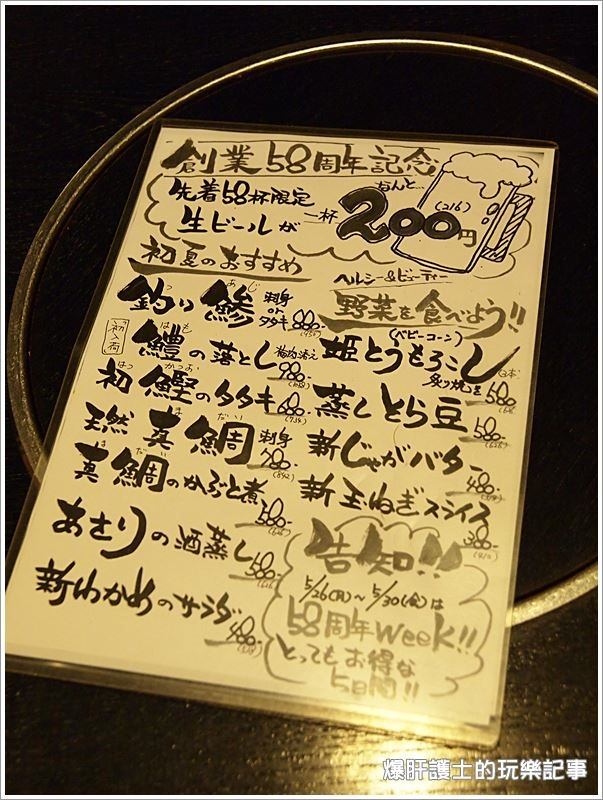 創業58周年記念
先着58杯限定
生ビールが
一杯
なんと…
200円
(216)
初夏のおすすめ
釣り鯵 刺身 or タタキ 880-
あじ
初入荷
鱧の落とし 梅肉添え 980-
はも
初鰹のタタキ 680-
はつ かつお
(734)
天然真鯛 刺身 780-
ま だい
(842)
真鯛のかぶと煮 580-
まだい
(626)
あさりの酒蒸し 580-
(626)
新わかめのサラダ 480-
(518)
ヘルシー&ビューティー
野菜を食べよう!!
(ベビーコーン)
姫とうもろこし
炙り焼き 580-
(626)
蒸しとら豆 580-
(626)
新じゃがバター 480-
(518)
新玉ねぎスライス 380-
(410)
告知!!
5/26(月)～5/30(金)は
58周年Week!!
とってもお得な
5日間!!
爆肝護士的玩樂記事